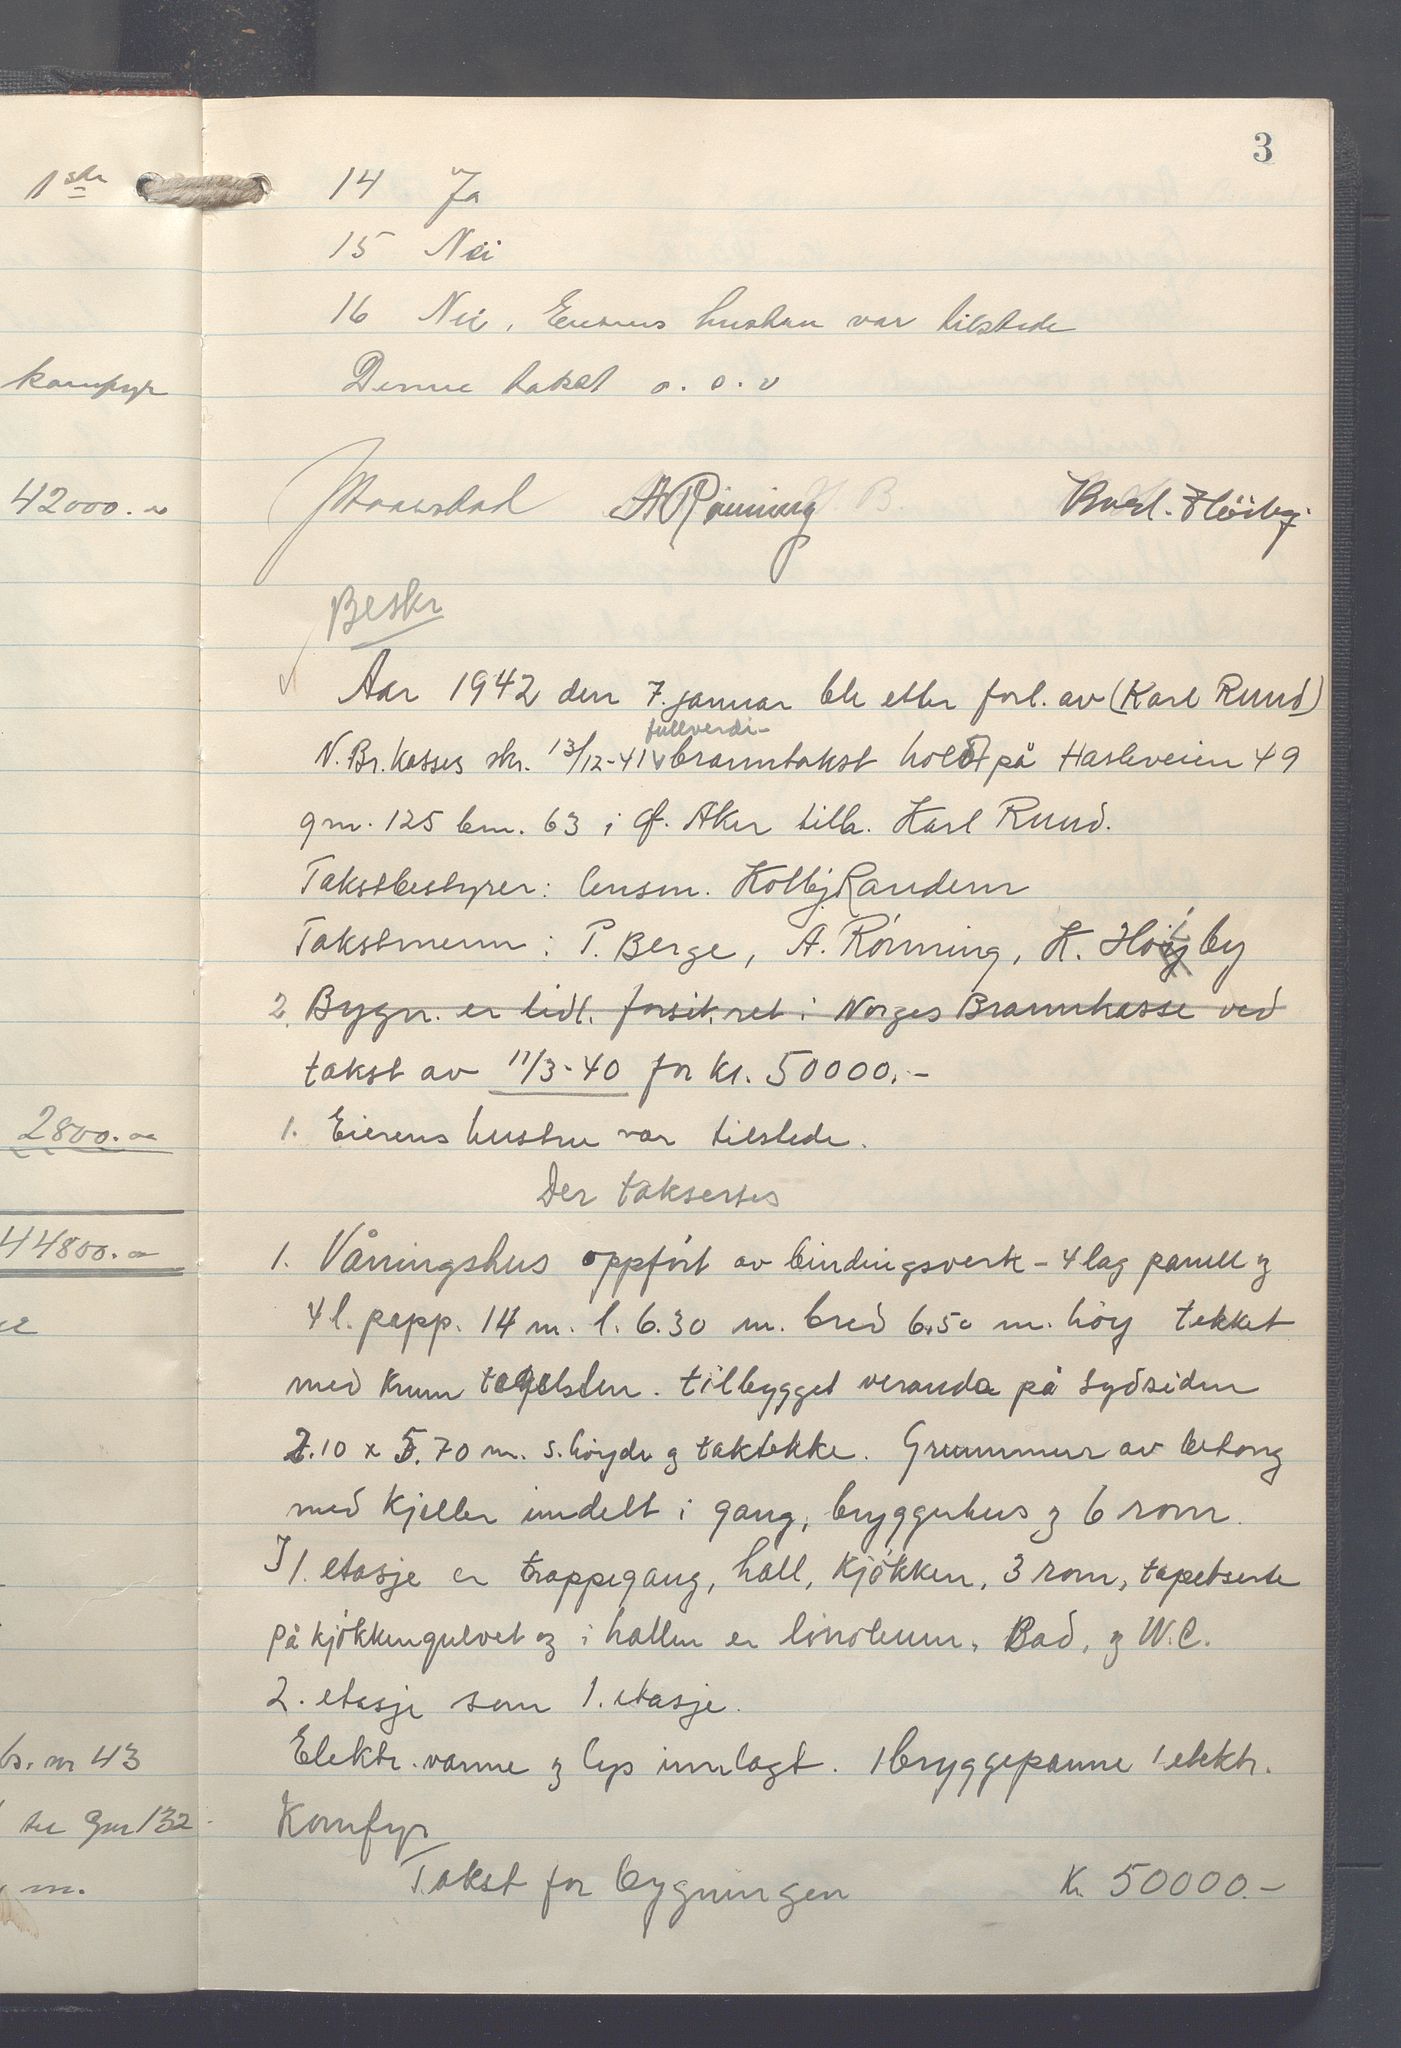 3
1ste
komfyr
42000.
2800.00
44800.00
bs. nr 43
til gnr 132
m.
14 Ja
15 Nei
16 Nei, Eierens hustru var tilstede
Denne takst o. s. v
A Rönning
Beskr
Aar 1942 den 7. januar ble etter forl. av (Karl Ruud)
fullverdi-
N. Br. kasses skr. 13/12-41 v branntakst holdt på Hasleveien 49
gnr. 125 bnr. 63 i Ø. Aker tilh. Karl Ruud.
Takstbestyrer: lensm. Kolbj. Randem
Takstmenn: P. Berge, A. Rönning, K. Höiby
2. Bygn. er tidl. forsikret i Norges Brannkasse ved
takst av 11/3-40 for kr. 50000.-
1. Eierens hustru var tilstede.
Der takseres
1. Våningshus oppfört av bindingsverk - 4 lag panell og
4 l. papp. 14 m. l. 6.30 m. bred 6.50 m. höy tekket
med krum teglsten. tilbygget veranda på sydsiden
2.10 x 5.70 m. s. höyde og taktekke. Grunnmur av betong
med kjeller inndelt i gang, bryggerhus og 6 rom.
I 1. etasje er trappegang, hall, kjökken, 3 rom, tapetserte
på kjökkengulvet og i hallen er linoleum, Bad, og W.C.
2. etasje som 1. etasje.
Elektr. varme og lys innlagt. 1 bryggepanne 1 elektr.
Komfyr
Takst for bygningen Kr. 50000.-